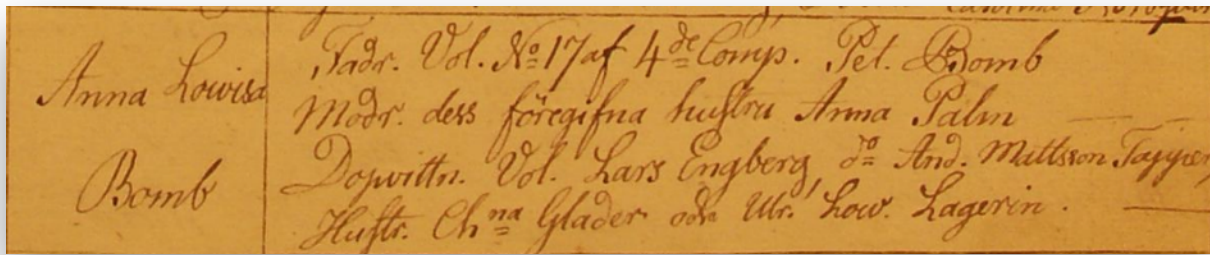 Anna Lowisa
Bomb
Fadr. Vol. No 17 af 4de Comp. Pet. Bomb
Modr. dess föregifna hustru Anna Palm
Dopvittn. Vol. Lars Engberg, do And. Mattsson
Hustr. Chna Glader och Ulr. Low. Lagerin.